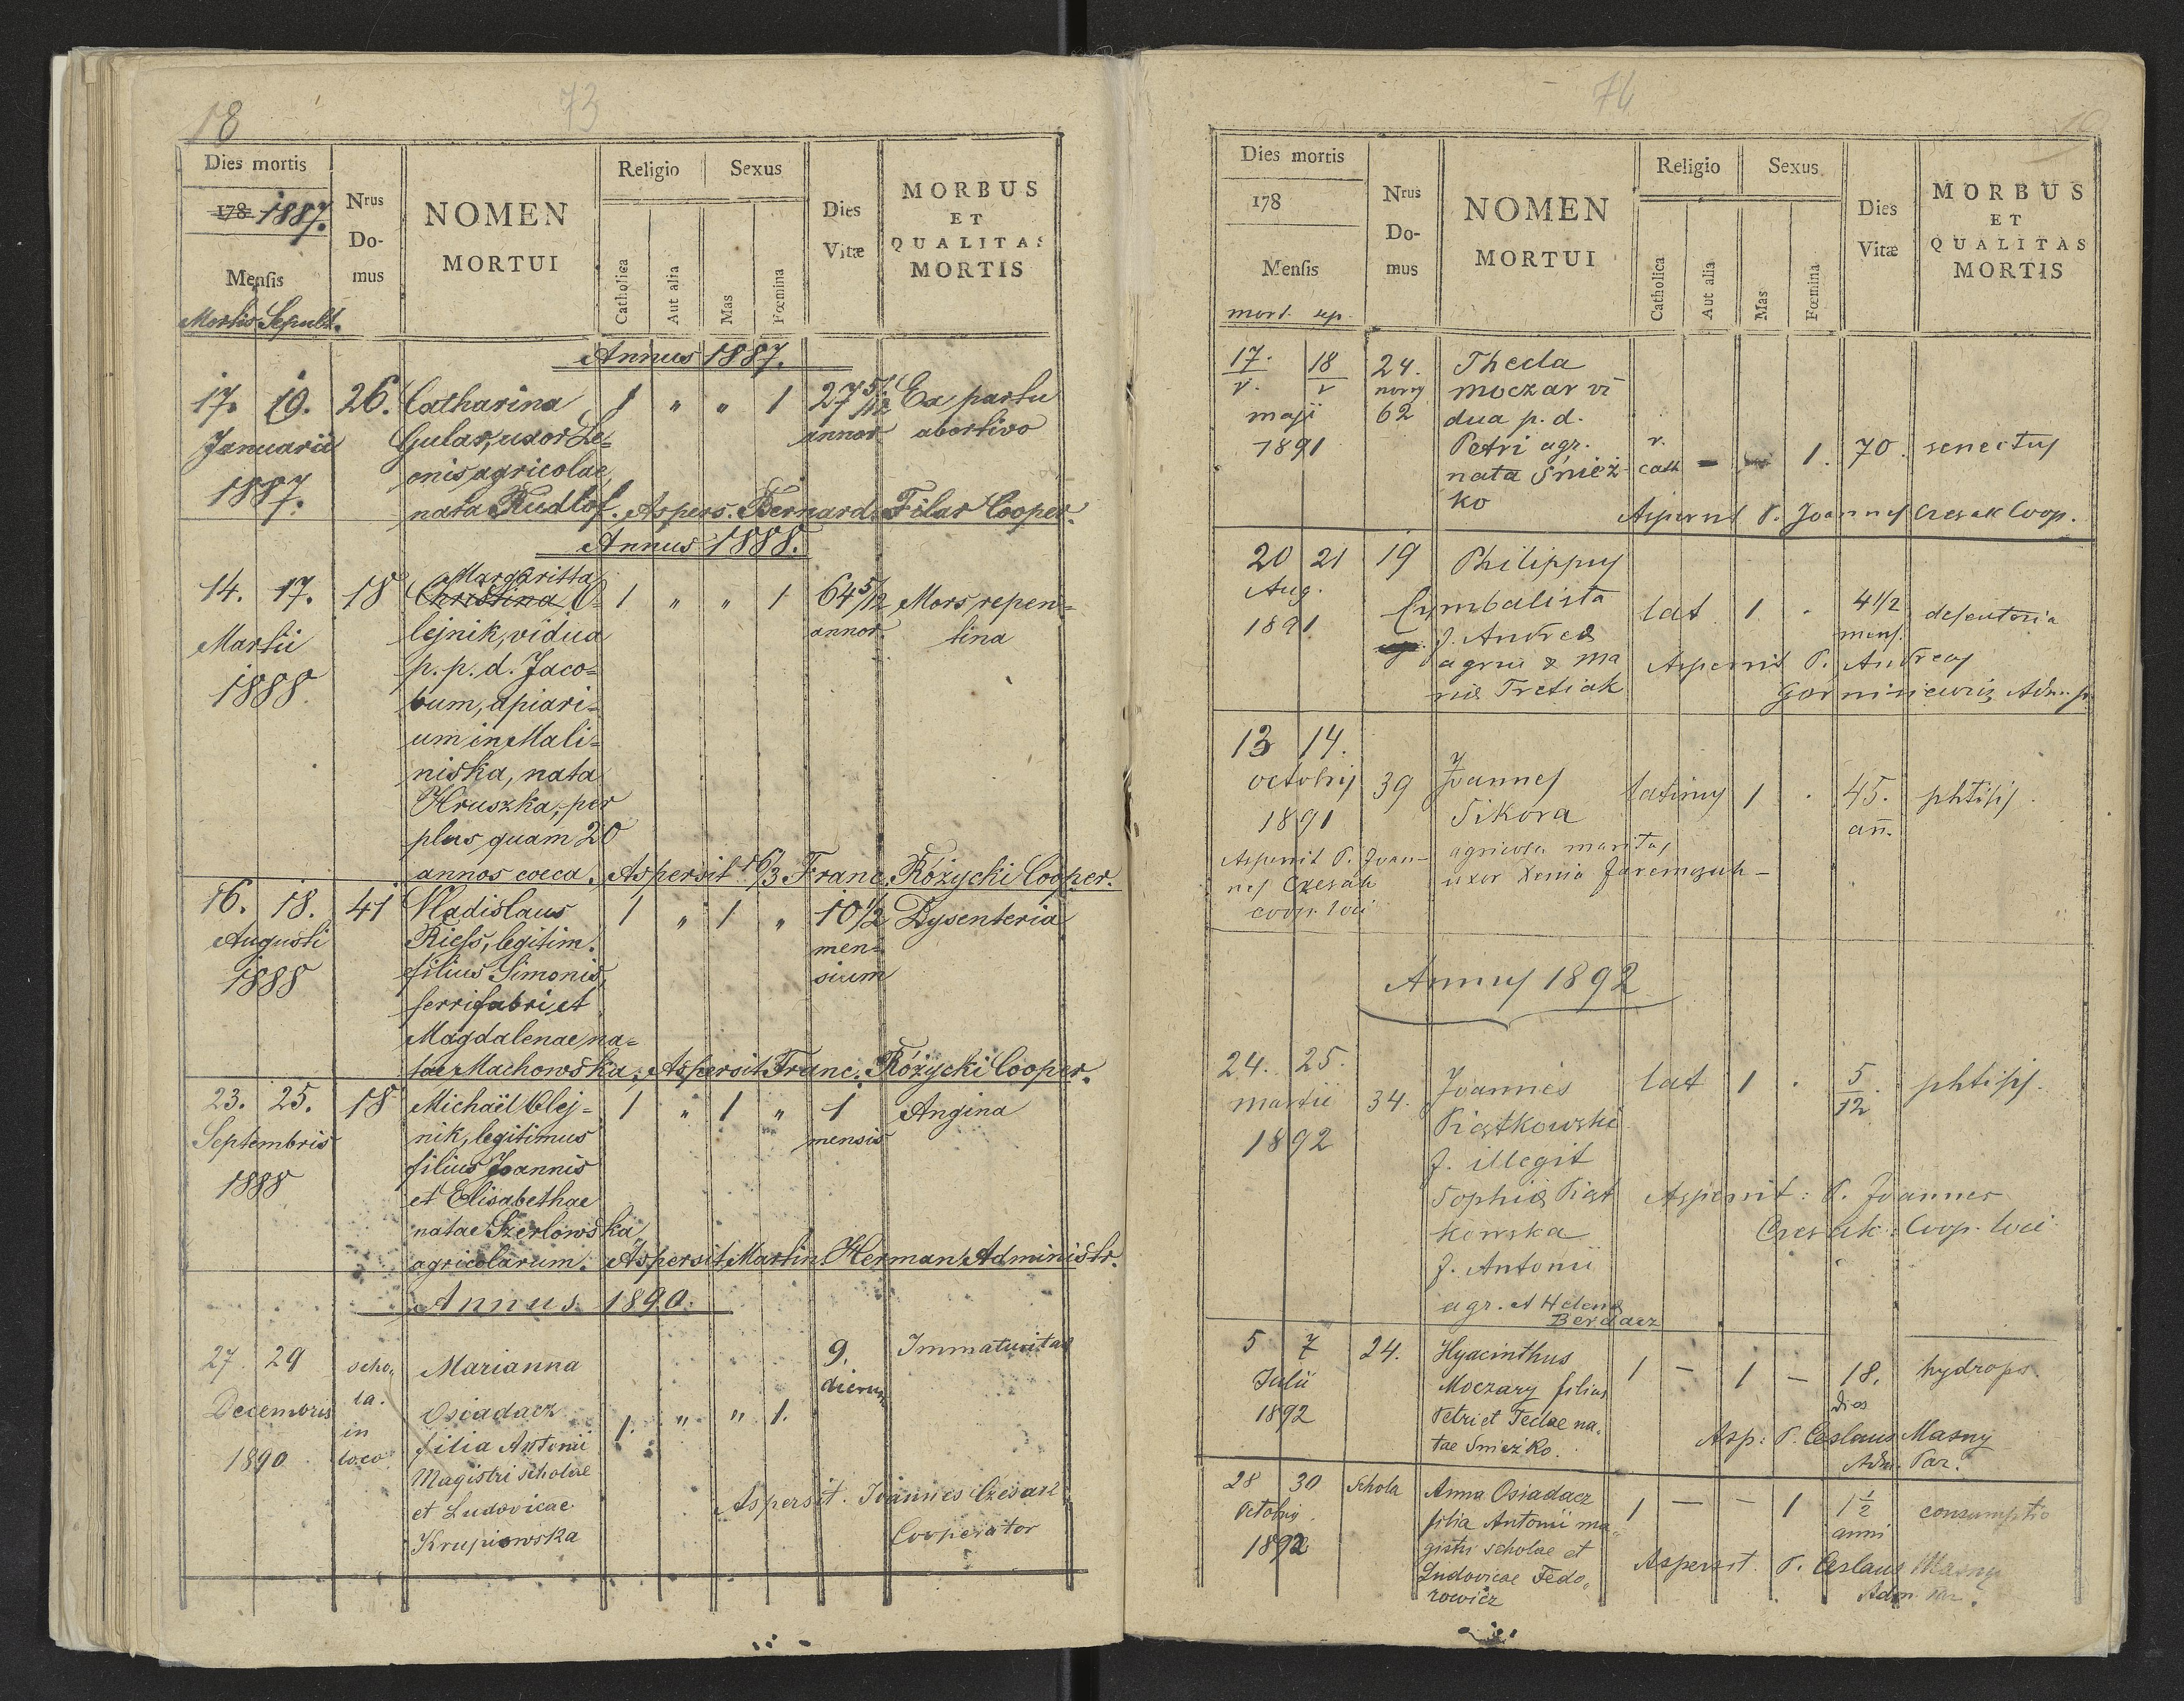 18
73
Dies mortis
178 1887.
Mensis
Mortis Sepult.
Nrus
Do-
mus
NOMEN
MORTUI
Religio
Catholica
Aut alia
Sexus
Mas
Fœmina
Dies
Vitæ
MORBUS
ET
QUALITAS
MORTIS
Annus 1887.
17. 19. 26. Catharina 1 " " 1 27 5/12 Ex partu
Januarii Gular, uxor Ze= annor. abortivo
enis agricolae,
1887. nata Rudlof. Aspers. Bernard. Filar Cooper.
Annus 1888.
Margaritta
14. 17. 18 Christina O= 1 " " 1 64 5/12 Mors repen=
Martii lejnik, vidua annor. tina
1888. p. p. d. Jaco=
bum, apiari=
um in Mali=
niska, nata
Hruszka, per
plus quam 20
annos coeca. Aspersit 16/3 Franc. Różycki Cooper.
16. 18. 41 Vladislaus 1 " 1 " 10 1/2 Dysenteria
Augusti Riess, legitim. men=
1888 filius Simonis, sium
ferrifabri et
Magdalenae na=
tae Machowska. Aspersit Franc. Różycki Cooper.
23. 25. 18 Michaël Olej= 1 " 1 " 1 Angina
Septembris nik, legitimus mensis
1888 filius Joannis
et Elisabethae
natae Szerlowska
agricolarum. Aspersit Martin. Herman Administr.
Annus 1890.
27. 29 scho- Marianna 9. Immaturitas
Decembris la. Osiadacz dierum
in filia Antonii 1. " " 1.
1890 loco Magistri scholae
et Ludovicae Aspersit. Joannes Czesak
Krupiowska Cooperator
74
Dies mortis
178
Mensis
mort. sep.
Nrus
Do-
mus
NOMEN
MORTUI
Religio
Catholica
Aut alia
Sexus
Mas
Fœmina
Dies
Vitæ
MORBUS
ET
QUALITAS
MORTIS
17. 18 24. Thecla
v. v novy moczar vi-
maji 62 dua p. d.
1891 Petri agr. r.
nata Śnież- cath - 1. 70. senectus
ko Aspersit P. Joannes Czesak Coop.
20 21 19 Philippus
Aug. Cymbalista lat 1. . 4 1/2 desenteria
1891. f. Andreæ mens.
agric & Ma Aspersit P. Andreas
riæ Tretiak Gorniniewicz Adm. p.
13 14.
octobris 39 Joannes latinus 1 . 45. phtisis.
1891 Sikora an̄.
Aspersit P. Joan- agricola maritus
nes Czesak uxor Xenia Jaremczuk -
coop. loci
Annus 1892
24. 25.
martii 34. Joannes lat 1 . 5/12 phtisis.
1892 Piątkowski
f. illegit
Sophiæ Piąt Aspersit: P. Joannes
kowska Czesak: Coop. loci
f. Antonii
agr. et Helenæ
Berdacz
5 7 24. Hyacinthus 1 - 1 - 18. hydrops.
Julii Moczary filius dies
1892 Petri et Teclae na- Asp: P. Ceslaus Masny
tae Snieżko. Adm. Par.
28 30 Schola Anna Osiadacz 1 - - 1 1 1/2 consumptio
Octobris. filia Antonii ma- anni
1892 gistri scholae et
Ludovicae Fedo- Aspersit. P. Ceslaus Masny
rowicz Adm. Par.